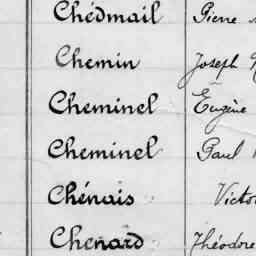 Chédmail Pierre
Chemin Joseph
Cheminel Eugène
Cheminel Paul
Chénais Victo
Chenard Théodore